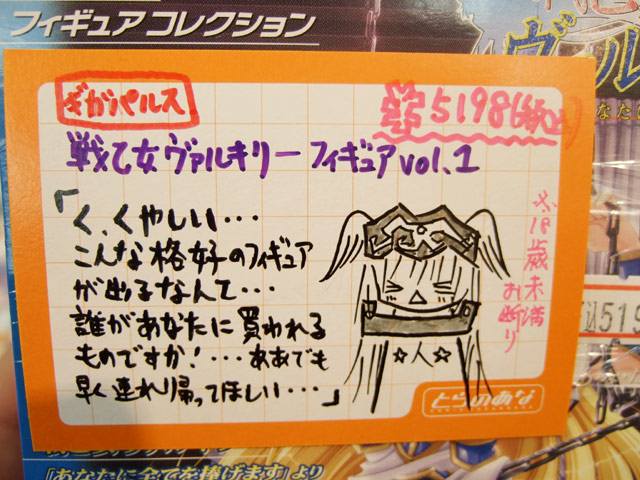 フィギュアコレクション
ギガパルス
51986
戦乙女ヴァルキリーフィギュアvol.1
「く、くやしい・・・
こんな格好のフィギュア
が出るなんて・・・
誰があなたに買われる
ものですか！・・・ああでも
早く連れ帰ってほしい・・・」
※18歳未満
お断り
☆人☆
とらのあな
519
「あなたに全てを捧げます」より